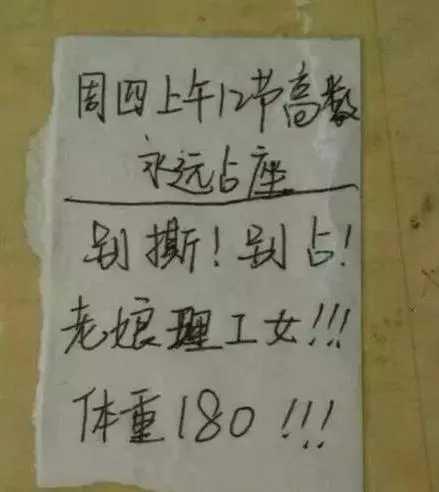 周四上午12节高数
永远占座
别撕！别占！
老娘理工女!!!
体重180!!!